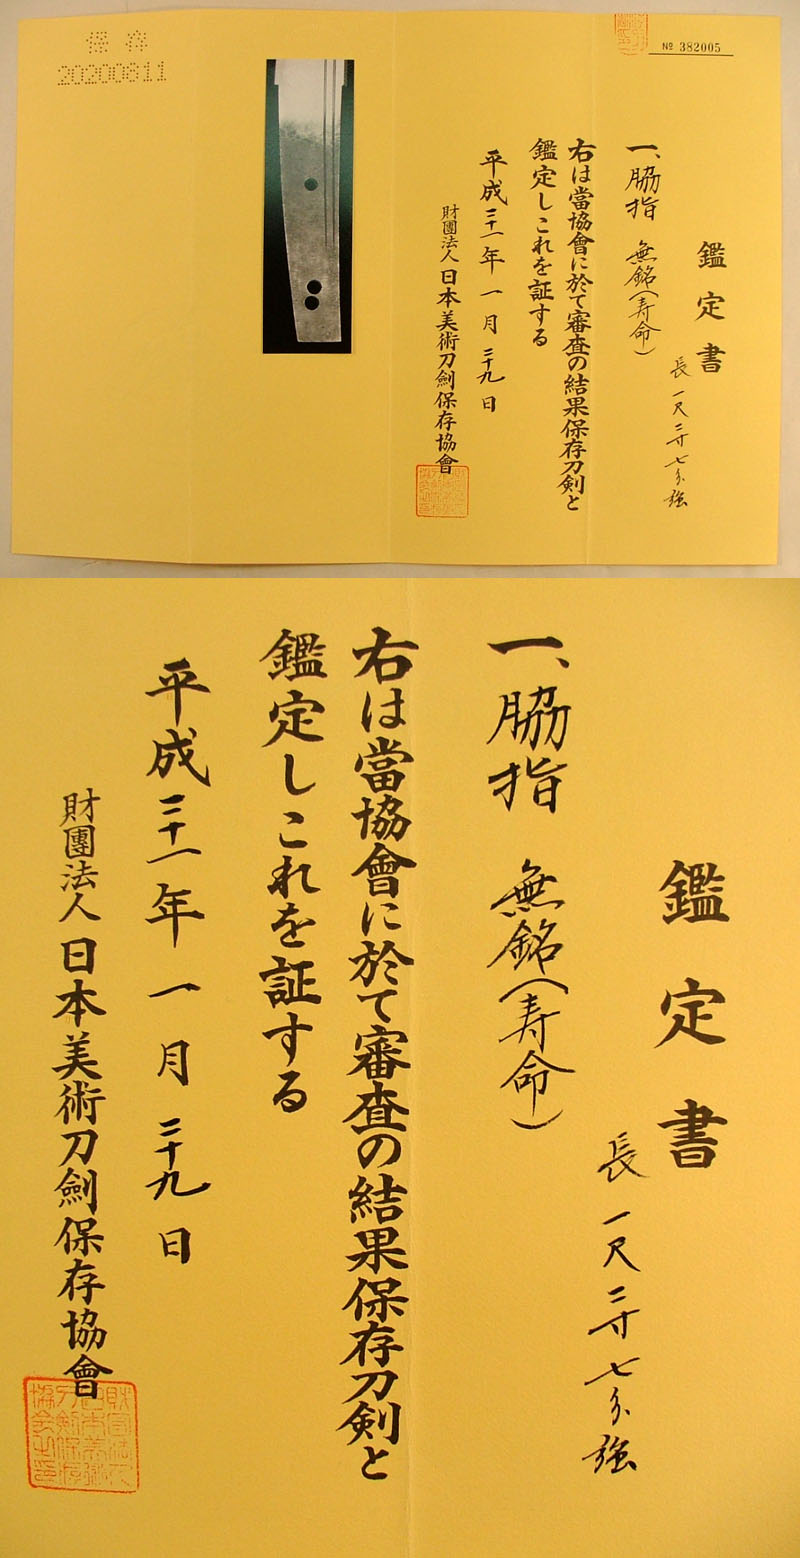 保存
20200611
№ 382005
鑑定書
一、脇指 無銘(寿命)
長一尺二寸七分強
右は當協會に於て審査の結果保存刀剣と
鑑定しこれを証する
平成三十一年一月二十九日
財團法人日本美術刀劍保存協會
鑑定書
長一尺二寸七分強
一、脇指 無銘(寿命)
右は當協會に於て審査の結果保存刀剣と
鑑定しこれを証する
平成三十一年一月二十九日
財團法人日本美術刀劍保存協會